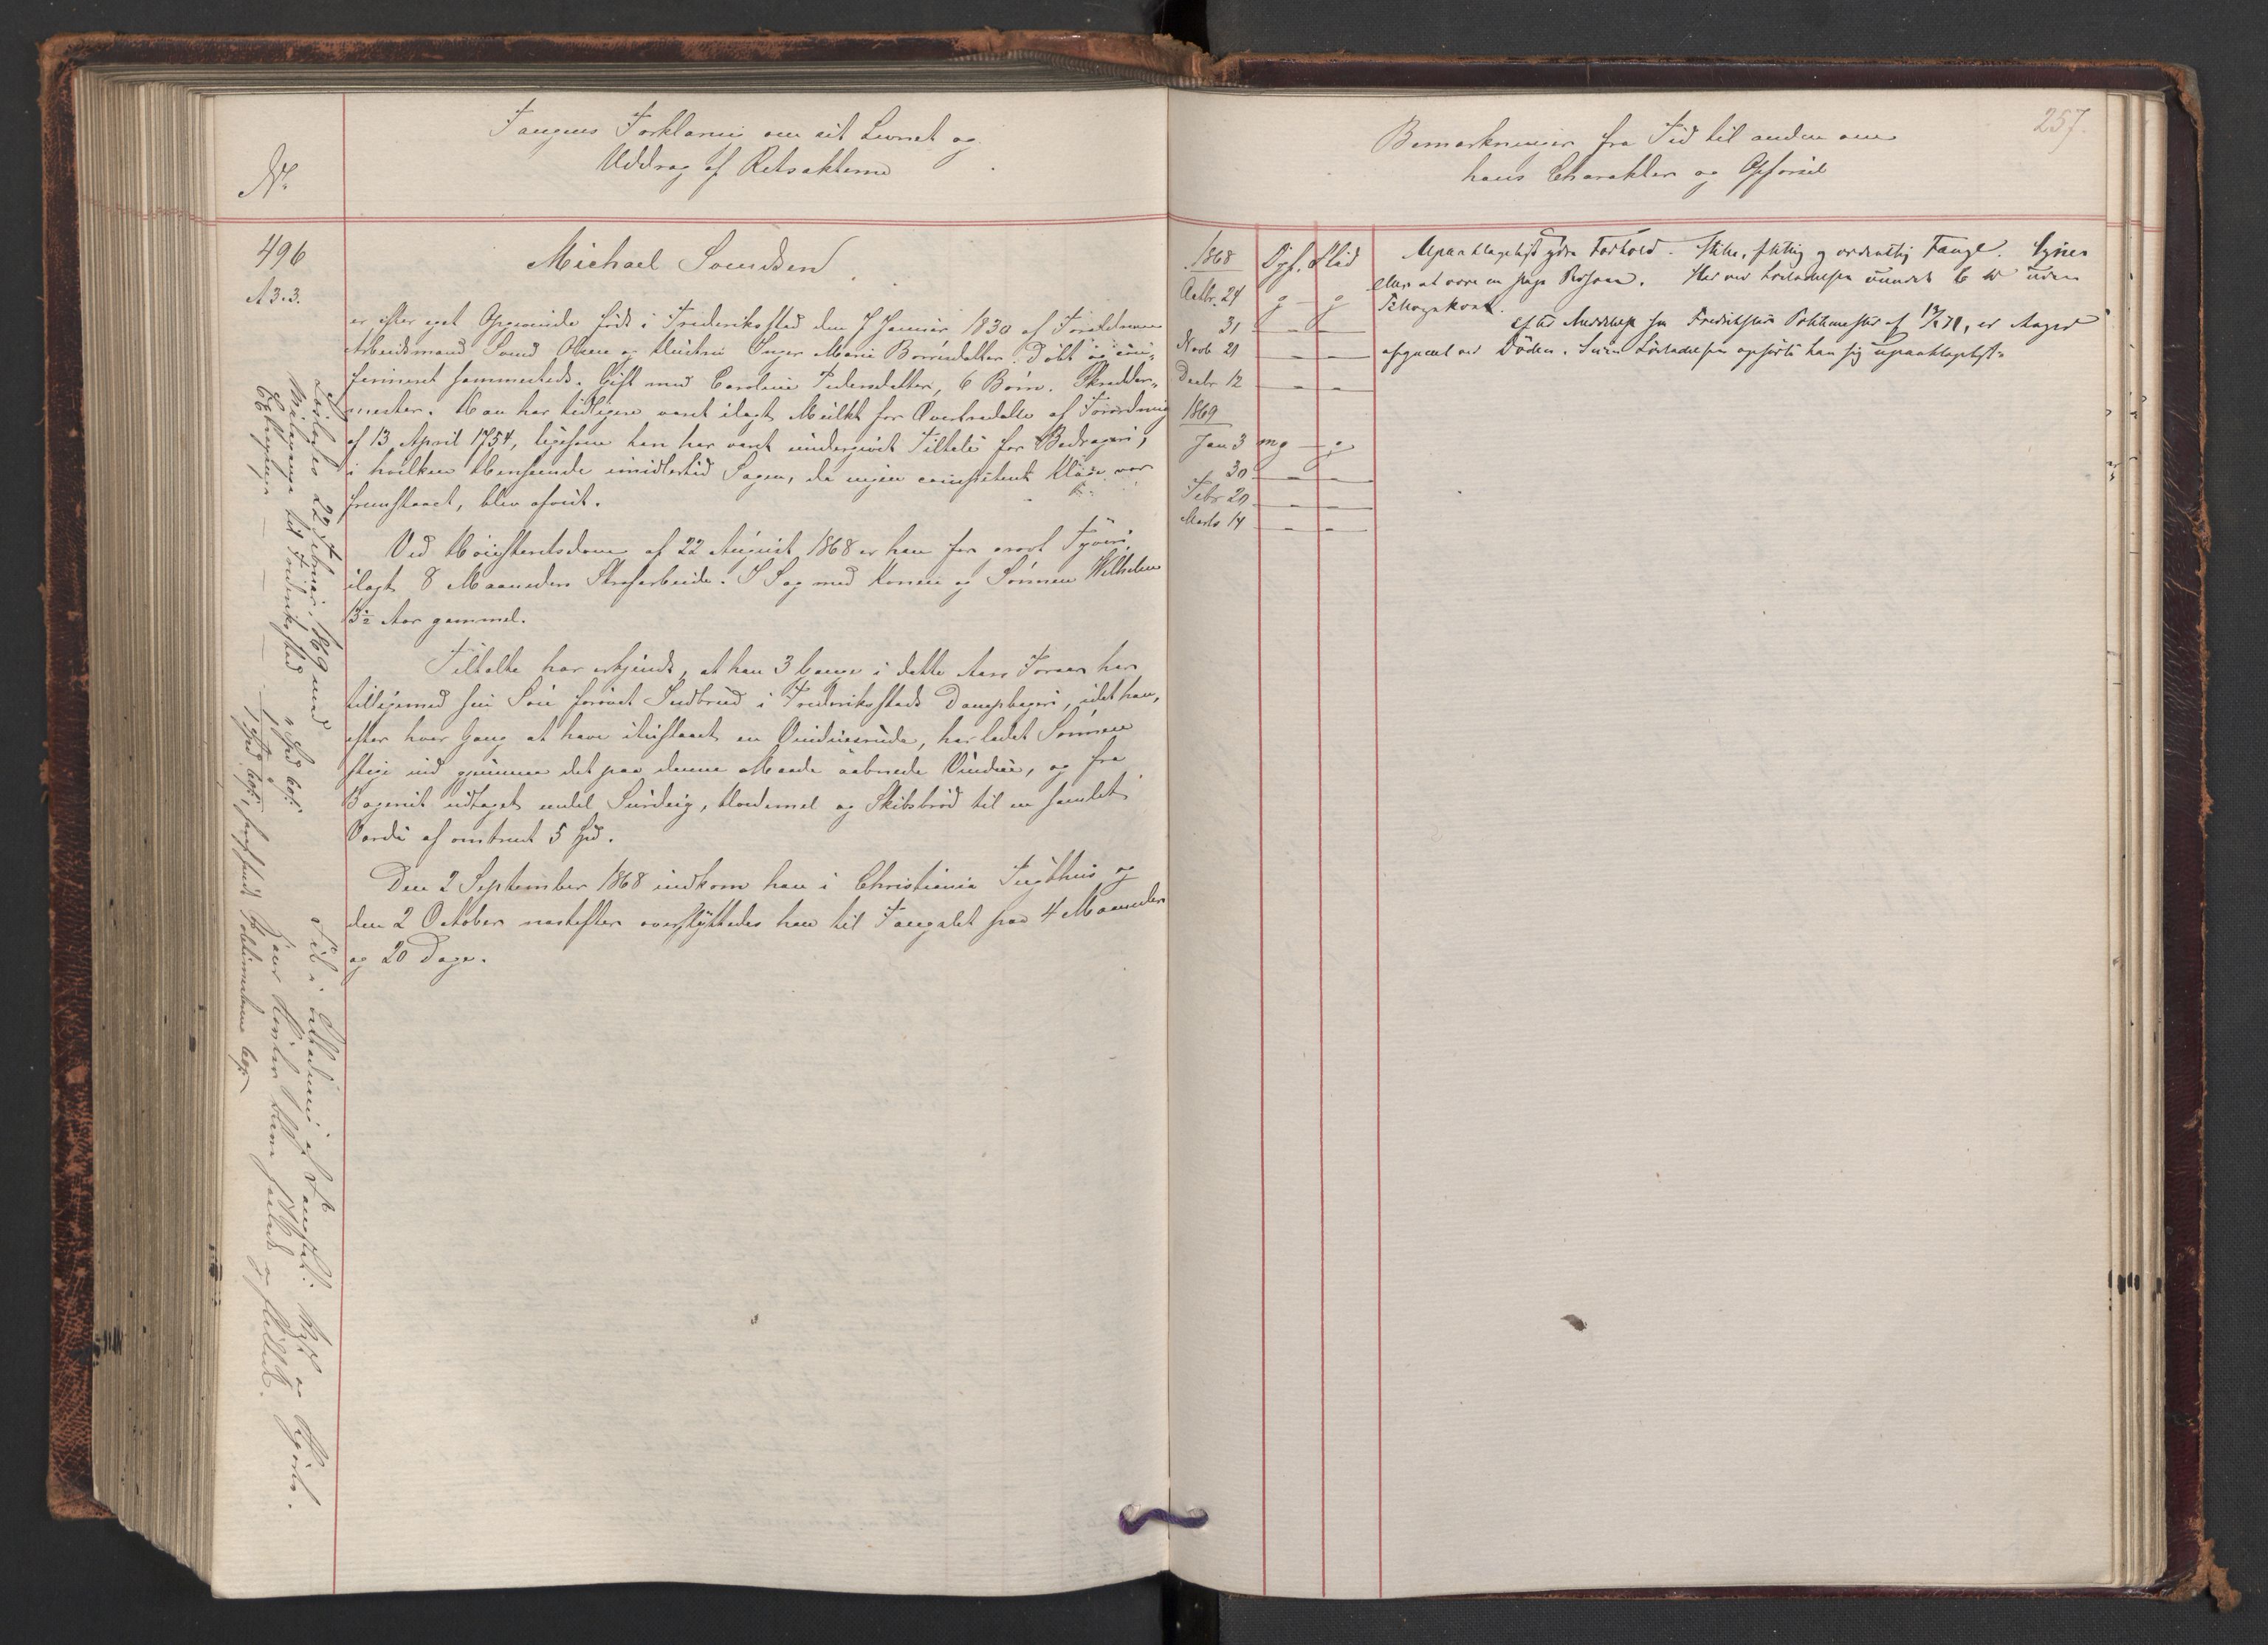 Fangens Forklaring om sit Levnet og
Uddrag af Retsakterne
No.
496
A 3.3.
Michael Svendsen
er efter eget Opgivende født i Frederiksstad den 7 Januar 1830 af Forældrene
Arbeidsmand Svend Olsen og Hustru Inger Marie Børresdatter. Døbt og con-
firmeret sammesteds. Gift med Caroline Pedersdatter, 6 Børn. Skrædder-
mester. Han har tidligere været ilagt Mulkt for Overtrædelse af Forordning
af 13 April 1754, ligesom han har været undergivet Tiltale for Bedrageri,
i hvilken Henseende imidlertid Sagen, da ingen competent Klage var
fremstaaet, blev afvist.
Ved Høiesteretsdom af 22 August 1868 er han for grovt Tyveri
ilagt 8 Maaneders Strafarbeide. I Sag med Konen og Sønnen Wilhelm
13½ Aar gammel.
Tiltalte har erkjendt, at han 3 Gange i dette Aars Foraar har
tilligemed sin Søn forøvet Indbrud i Frederiksstads Dampbageri, idet han,
efter hver Gang at have itustaaet en Vinduesrude, har ladet Sønnen
stige ind gjennem det paa denne Maade aabnede Vindue, og fra
Bageriet udtaget endel Surdeig, Hvedemel og Skibsbrød til en samlet
Værdi af omtrent 5 Spd.
Den 2 September 1868 indkom han i Christiania Tugthus og
den 2 October næstefter overflyttedes han til Fængslet paa 4 Maaneder
og 20 Dage.
Løslades 22 Februar 1869 med
til Frederiksstad " Spd
1 Spd
257.
Bemærkninger fra Tid til anden om
hans Charakter og Opførsel
1868 Opf. Flid
Octbr. 24 g g
31 – –
Novb 21 – –
Decbr 12 – –
1869
Jan 3 mg g
30 – –
Febr 20 – –
Marts 14 – –
Upaaklageligt ydre Forhold. Stille, flittig og ordentlig Fange. Synes
ellers at være en svag Person. Har ved Løsladelsen uden
Efter Meddelelse fra Fredriksstad Politimester af 13/2 71, er Fangen
afgaaet ved Døden. Siden Løsladelsen opførte han sig upaaklageligt.